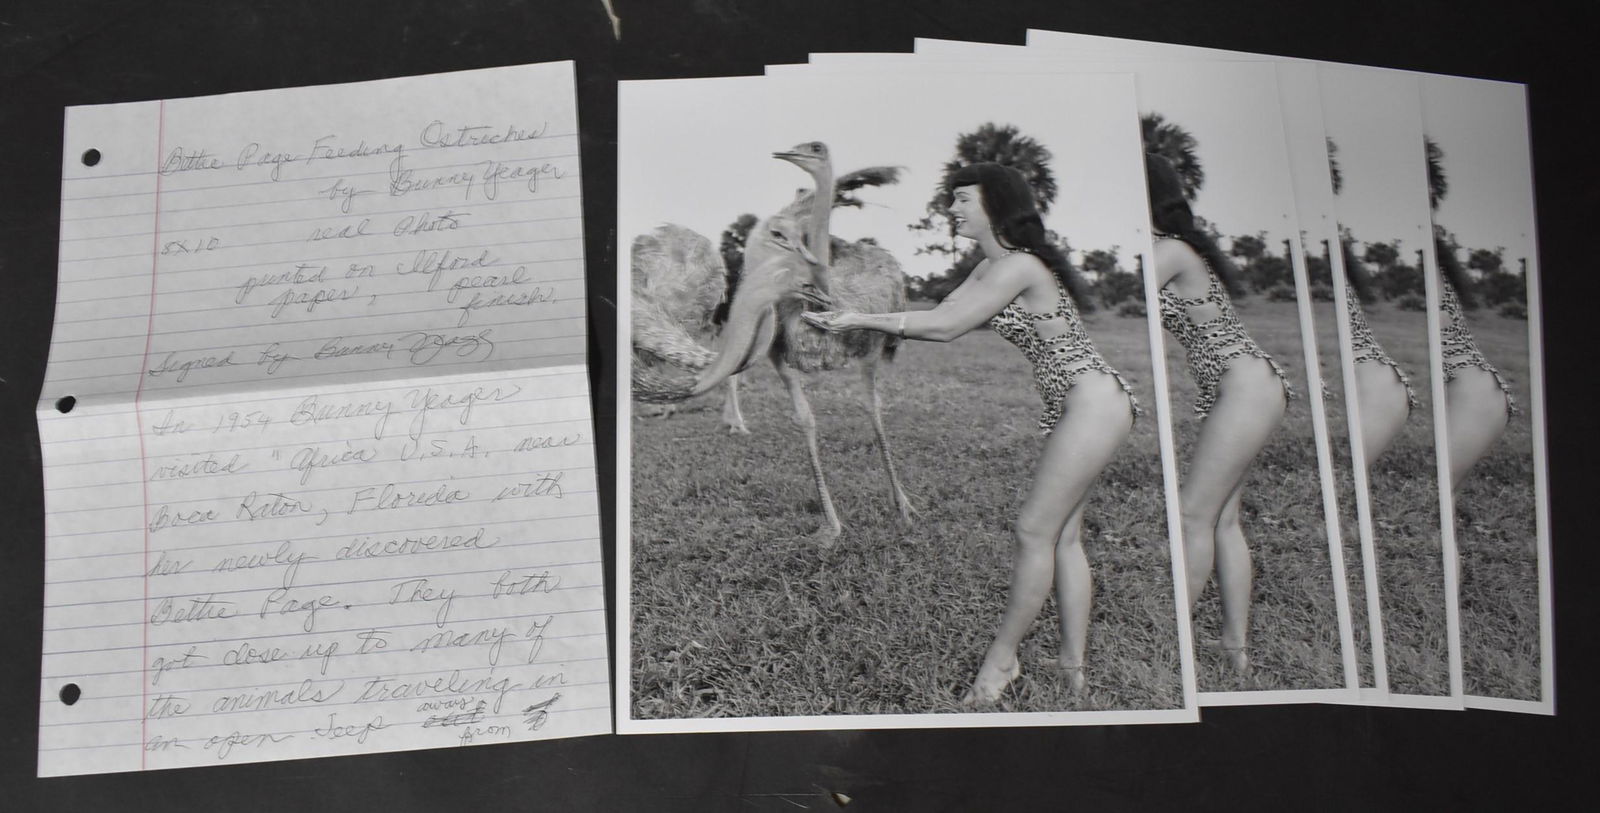 Bettie Page Feeding Ostriches
by Bunny Yeager
8X10 real Photo
printed on Ilford
paper, pearl
finish.
Signed by Bunny Yeager
In 1954 Bunny Yeager
visited "Africa U.S.A. near
Boca Raton, Florida with
her newly discovered
Bettie Page. They both
got close up to many of
the animals traveling in
an open Jeep away
from